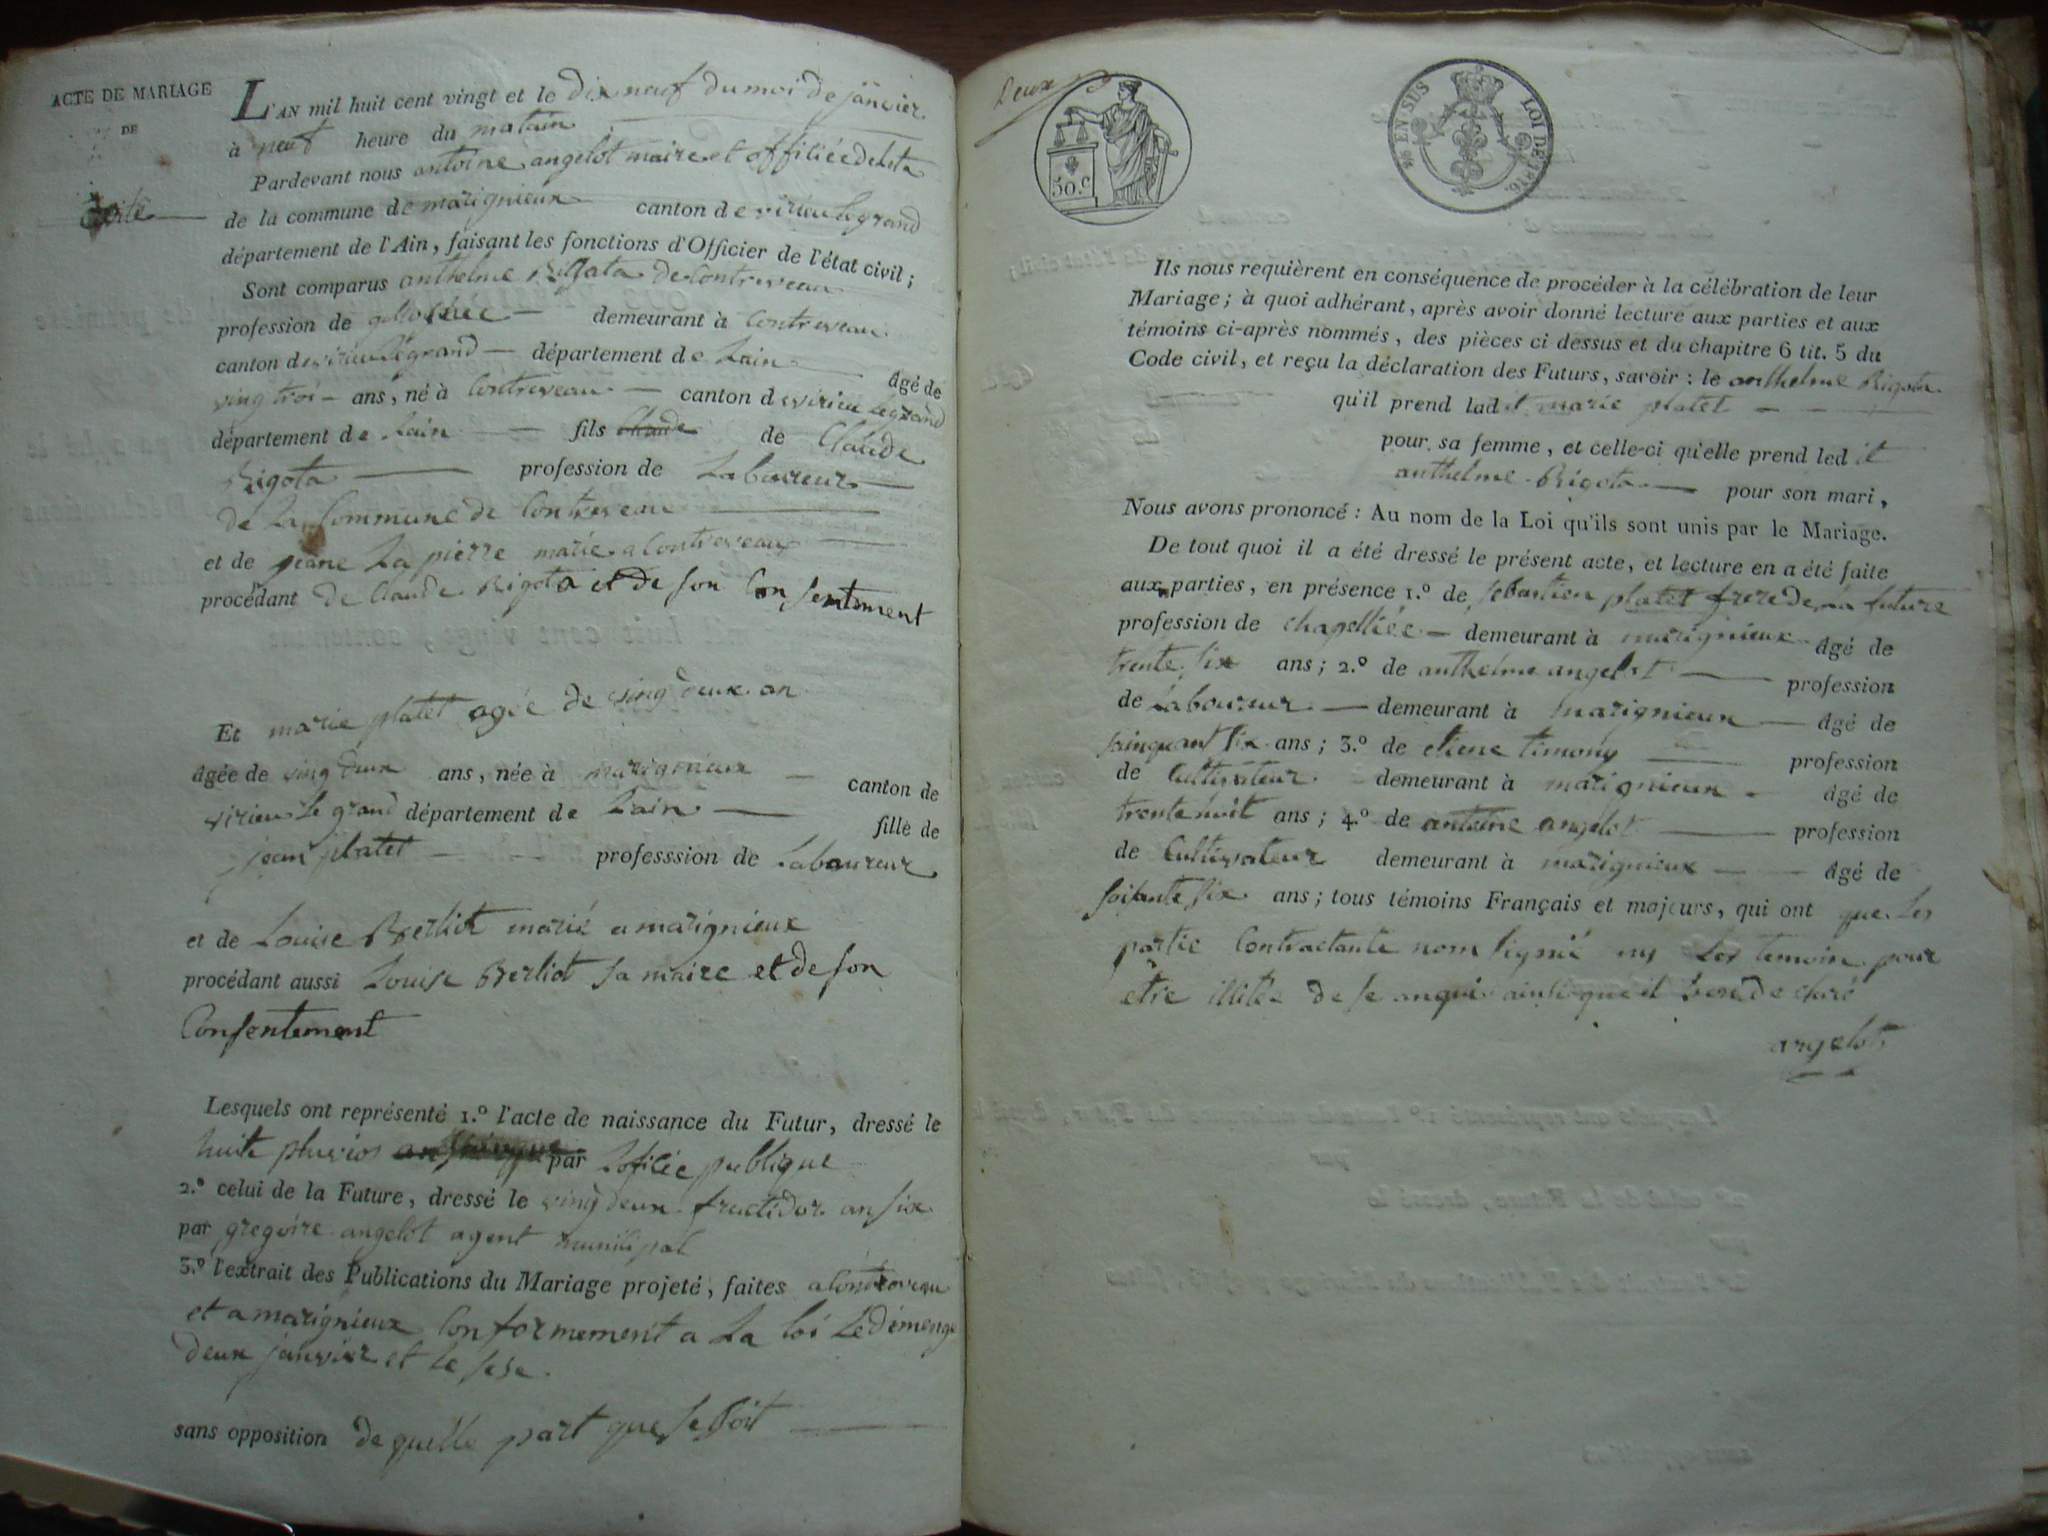 ACTE DE MARIAGE
DE
L'AN mil huit cent vingt et le dix neuf du moi de janvier
à neuf heure du matain
Pardevant nous antoine angelot maire et officiée deleta
de la commune de marignieux canton de virieu le grand
département de l'Ain, faisant les fonctions d'Officier de l'état civil;
Sont comparus anthelme Rigota de Contreveau
profession de demeurant à Contreveau
canton de virieu le grand département de Lain âgé de
ving troi ans, né à Contreveau canton de virieu le grand
département de Lain fils Claude de Claude
Rigota profession de Laboureur
de La Commune de Contreveau
et de jeane La pierre marié a Contreveau
procédant de Claude Rigota et de son Consentement
Et marie platet agée de ving deux an
âgée de ving deux ans, née à marignieux canton de
virieu Le grand département de Lain fille de
jean platet professsion de Laboureur
et de Louise Berliot marié a marignieux
procédant aussi Louise Berliot sa maire et de son
Consentement
Lesquels ont représenté 1.º l'acte de naissance du Futur, dressé le
huit pluvios par Lofiliée publique
2.º celui de la Future, dressé le ving deux fructidor an six
par gregoire angelot agent municipal
3.º l'extrait des Publications du Mariage projeté, faites a Contreveau
et a marignieux Conformement a La loi Le dimenge
deux janvier et le sese
sans opposition de quelle part que se soit
Deux
50.c
EN SUS
LOI DE 1816.
Ils nous requièrent en conséquence de procéder à la célébration de leur
Mariage; à quoi adhérant, après avoir donné lecture aux parties et aux
témoins ci-après nommés, des pièces ci dessus et du chapitre 6 tit. 5 du
Code civil, et reçu la déclaration des Futurs, savoir: le anthelme Rigota
qu'il prend ladit marie platet
pour sa femme, et celle-ci qu'elle prend ledit
anthelme Rigota pour son mari,
Nous avons prononcé: Au nom de la Loi qu'ils sont unis par le Mariage.
De tout quoi il a été dressé le présent acte, et lecture en a été faite
aux parties, en présence 1.º de sebastien platet frere de La future
profession de chapelliée demeurant à marignieux âgé de
trente six ans; 2.º de anthelme angelot profession
de Laboureur demeurant à marignieux âgé de
sinquant six ans; 3.º de etiene timony profession
de Cultivateur demeurant à marignieux âgé de
trente huit ans; 4.º de antoine angelot profession
de Cultivateur demeurant à marignieux âgé de
soisante six ans; tous témoins Français et majeurs, qui ont que Les
partie Contractante nom signié ny Les temoin pour
etre de se anqui ainsi que il declaré
angelot